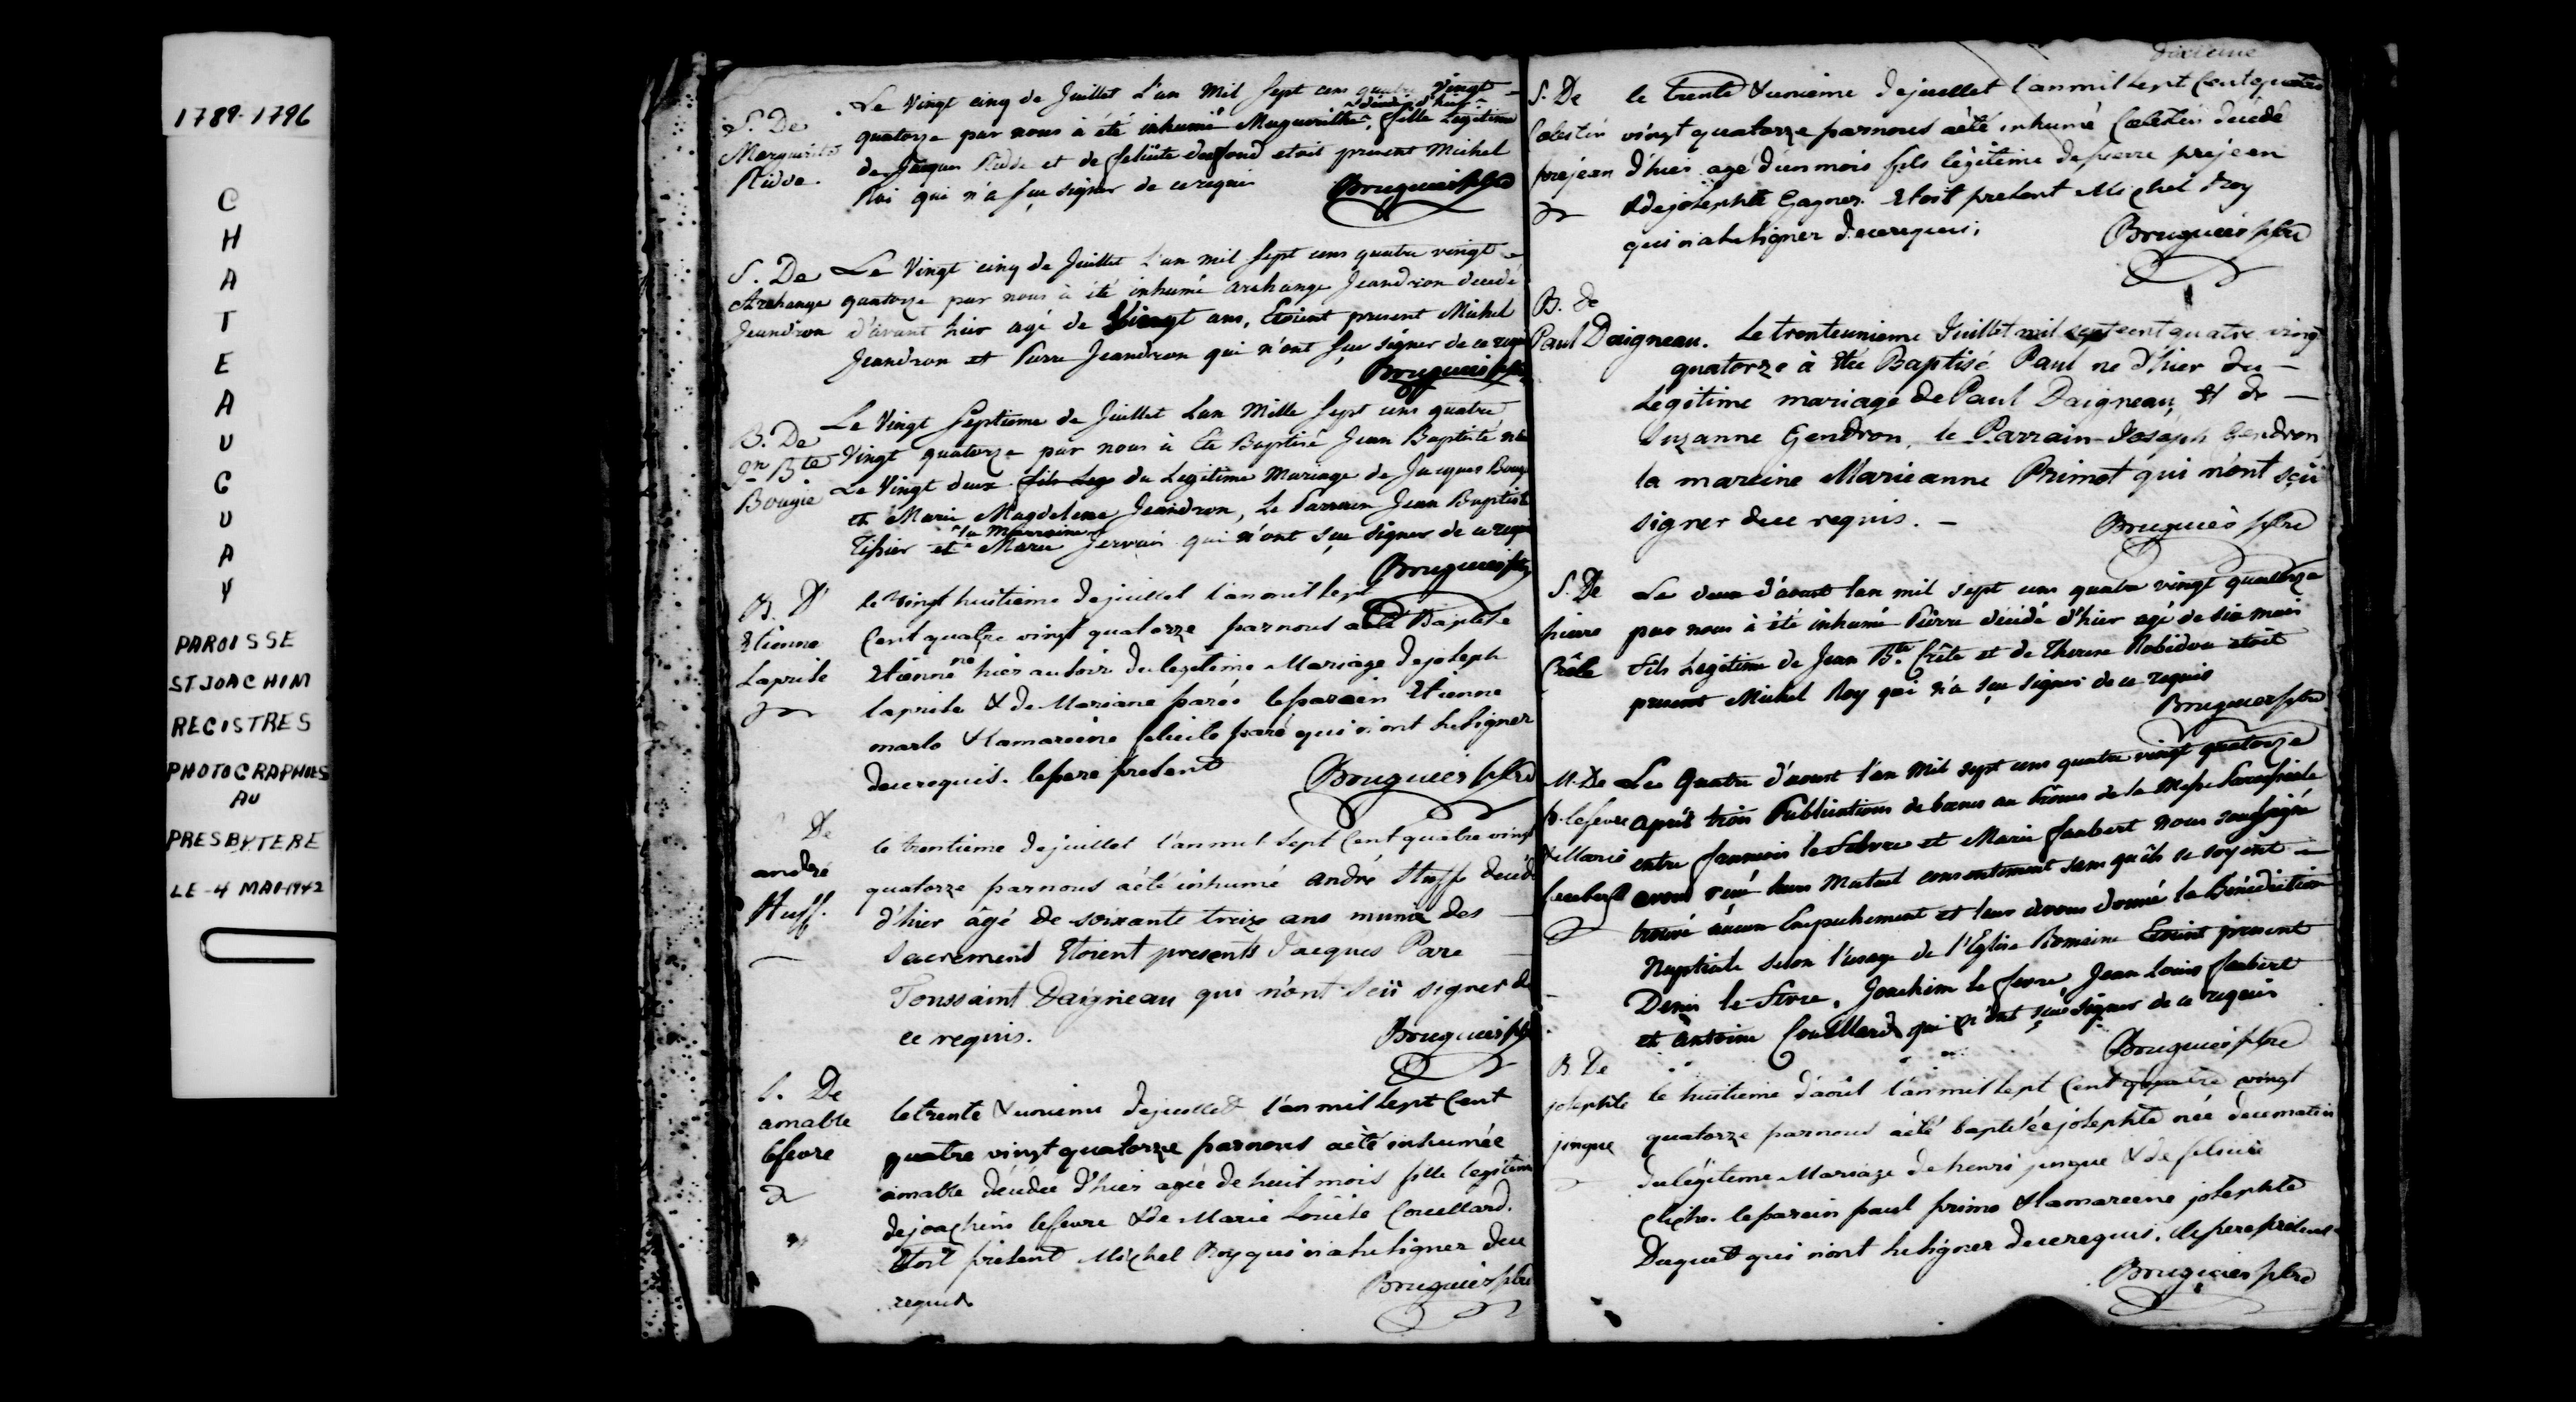 1789-1796
CHATEAUGUAY
PAROISSE
ST JOACHIM
REGISTRES
PHOTOGRAPHIES
AU
PRESBYTERE
LE 4 MAI-1942
S. De
Marguerite
Ridde.
Le Vingt cinq de Juillet L'an Mil Sept cens quatre Vingt
decedee d'hier
quatorze par nous à été inhumé Marguerithe, fille Legitime
de Jacques Ridde et de etoit present Michel
Roi qui n'a sçu signer de ce requis
Bruguier ptre
S. De
Archange
Jeandron
Le Vingt cinq de Juillet L'an mil Sept cens quatre vingt
quatorze par nous à été inhumé archange Jeandron decedé
d'avant hier agé de Vingt ans, Etoient present Michel
Jeandron et Pierre Jeandron qui n'ont sçu signer de ce requis
Bruguier ptre
B. De
Jn Bte
Bougie
Le Vingt Septieme de Juillet Lan Mille Sept cens quatre
Vingt quatorze par nous à Eté Baptisé Jean Baptiste né
Le Vingt deux fils Leg du Legitime Mariage de Jacques Bougie
et Marie Magdeleine Jeandron, Le Parrain Jean Baptiste
la Marraine
Tissier et Marie Gervais qui n'ont sçu signer de ce requis
Bruguier ptre
B. D'
Etienne
Laprise
le vingt huitieme de juillet l'an mil sept
Cent quatre vingt quatorze par nous a été Baptisé
Etienne né hier au soir du legitime Mariage de joseph
laprise & de Mariane paré le parein Etienne
marlo & la mareine felicite paré qui n'ont sçu signer
de ce requis. le pere present
Bruguier ptre
De
andré
Stuff.
le trentieme de juillet l'an mil sept Cent quatre vingt
quatorze par nous a été inhumé andré Stuffe decedé
d'hier âgé de soixante treize ans munie des
Sacremens Etoient presents Jacques Pare
Toussaint Daigneau qui n'ont sçû signer de
ce requis.
Bruguier ptre
S. De
amable
lefevre
le trente & unieme de juillet l'an mil sept Cent
quatre vingt quatorze par nous a été inhumée
amable décédée d'hier agée de huit mois fille legitime
de joachim lefevre & de Marie Louise Couellard.
Etoit présent Michel Roy qui n'a sçu signer de ce
requis
Bruguier ptre
S. De
Celestin
préjean
le trente & unieme de juillet l'an mil sept Cent quatre
vingt quatorze par nous a été inhumé Celestin décédé
d'hier agé d'un mois fils légitime de pierre prejean
& de josephte Gagner. Etoit present Michel Roy
qui n'a sçu signer de ce requis.
Bruguier ptre
B. de
Paul Daigneau.
Le trenteunieme Juillet mil sept cent quatre vingt
quatorze à Eté Baptisé Paul né d'hier du
Légitime mariage de Paul Daigneau, et de
Suzanne Gendron, le Parrain Joseph Gendron
la mareine Marieanne Primot qui n'ont sçû
signer de ce requis.
Bruguier ptre
S. De
pierre
Crête
Le deux d'aoust lan mil sept cens quatre vingt quatorze
par nous à été inhumé Pierre décédé d'hier agé de six mois
fils Legitime de Jean Bte Crête et de Therese Robidou etoit
present Michel Roy qui n'a sçu signer de ce requis
Bruguier ptre
M. De
f. lefevre
& Marie
faubert
Le Quatre d'aoust l'an Mil sept cens quatre vingt quatorze
après trois Publications de bans au Prônes de la Messe Paroissiale
entre francois le febvre et Marie faubert nous soussigné
avons reçu leurs Mutuel consentement sans qu'ils se soyent
trouvé aucun Empechement et leur avons donné la Bénédiction
Nuptiale selon l'usage de l'Eglise Romaine Etoient present
Denis le fevre, Joachim le fevre, Jean Louis faubert
et antoine Couellard qui n'ont sçu signer de ce requis
Bruguier ptre
B. De
josephte
jingue
le huitieme d'août l'an mil sept Cent quatre vingt
quatorze par nous a été baptisée josephte née de ce matin
du légitime Mariage de henri jingue & de felicité
le parein paul primo & la mareine josephte
Duquet qui n'ont sçu signer de ce requis, le pere present
Bruguier ptre